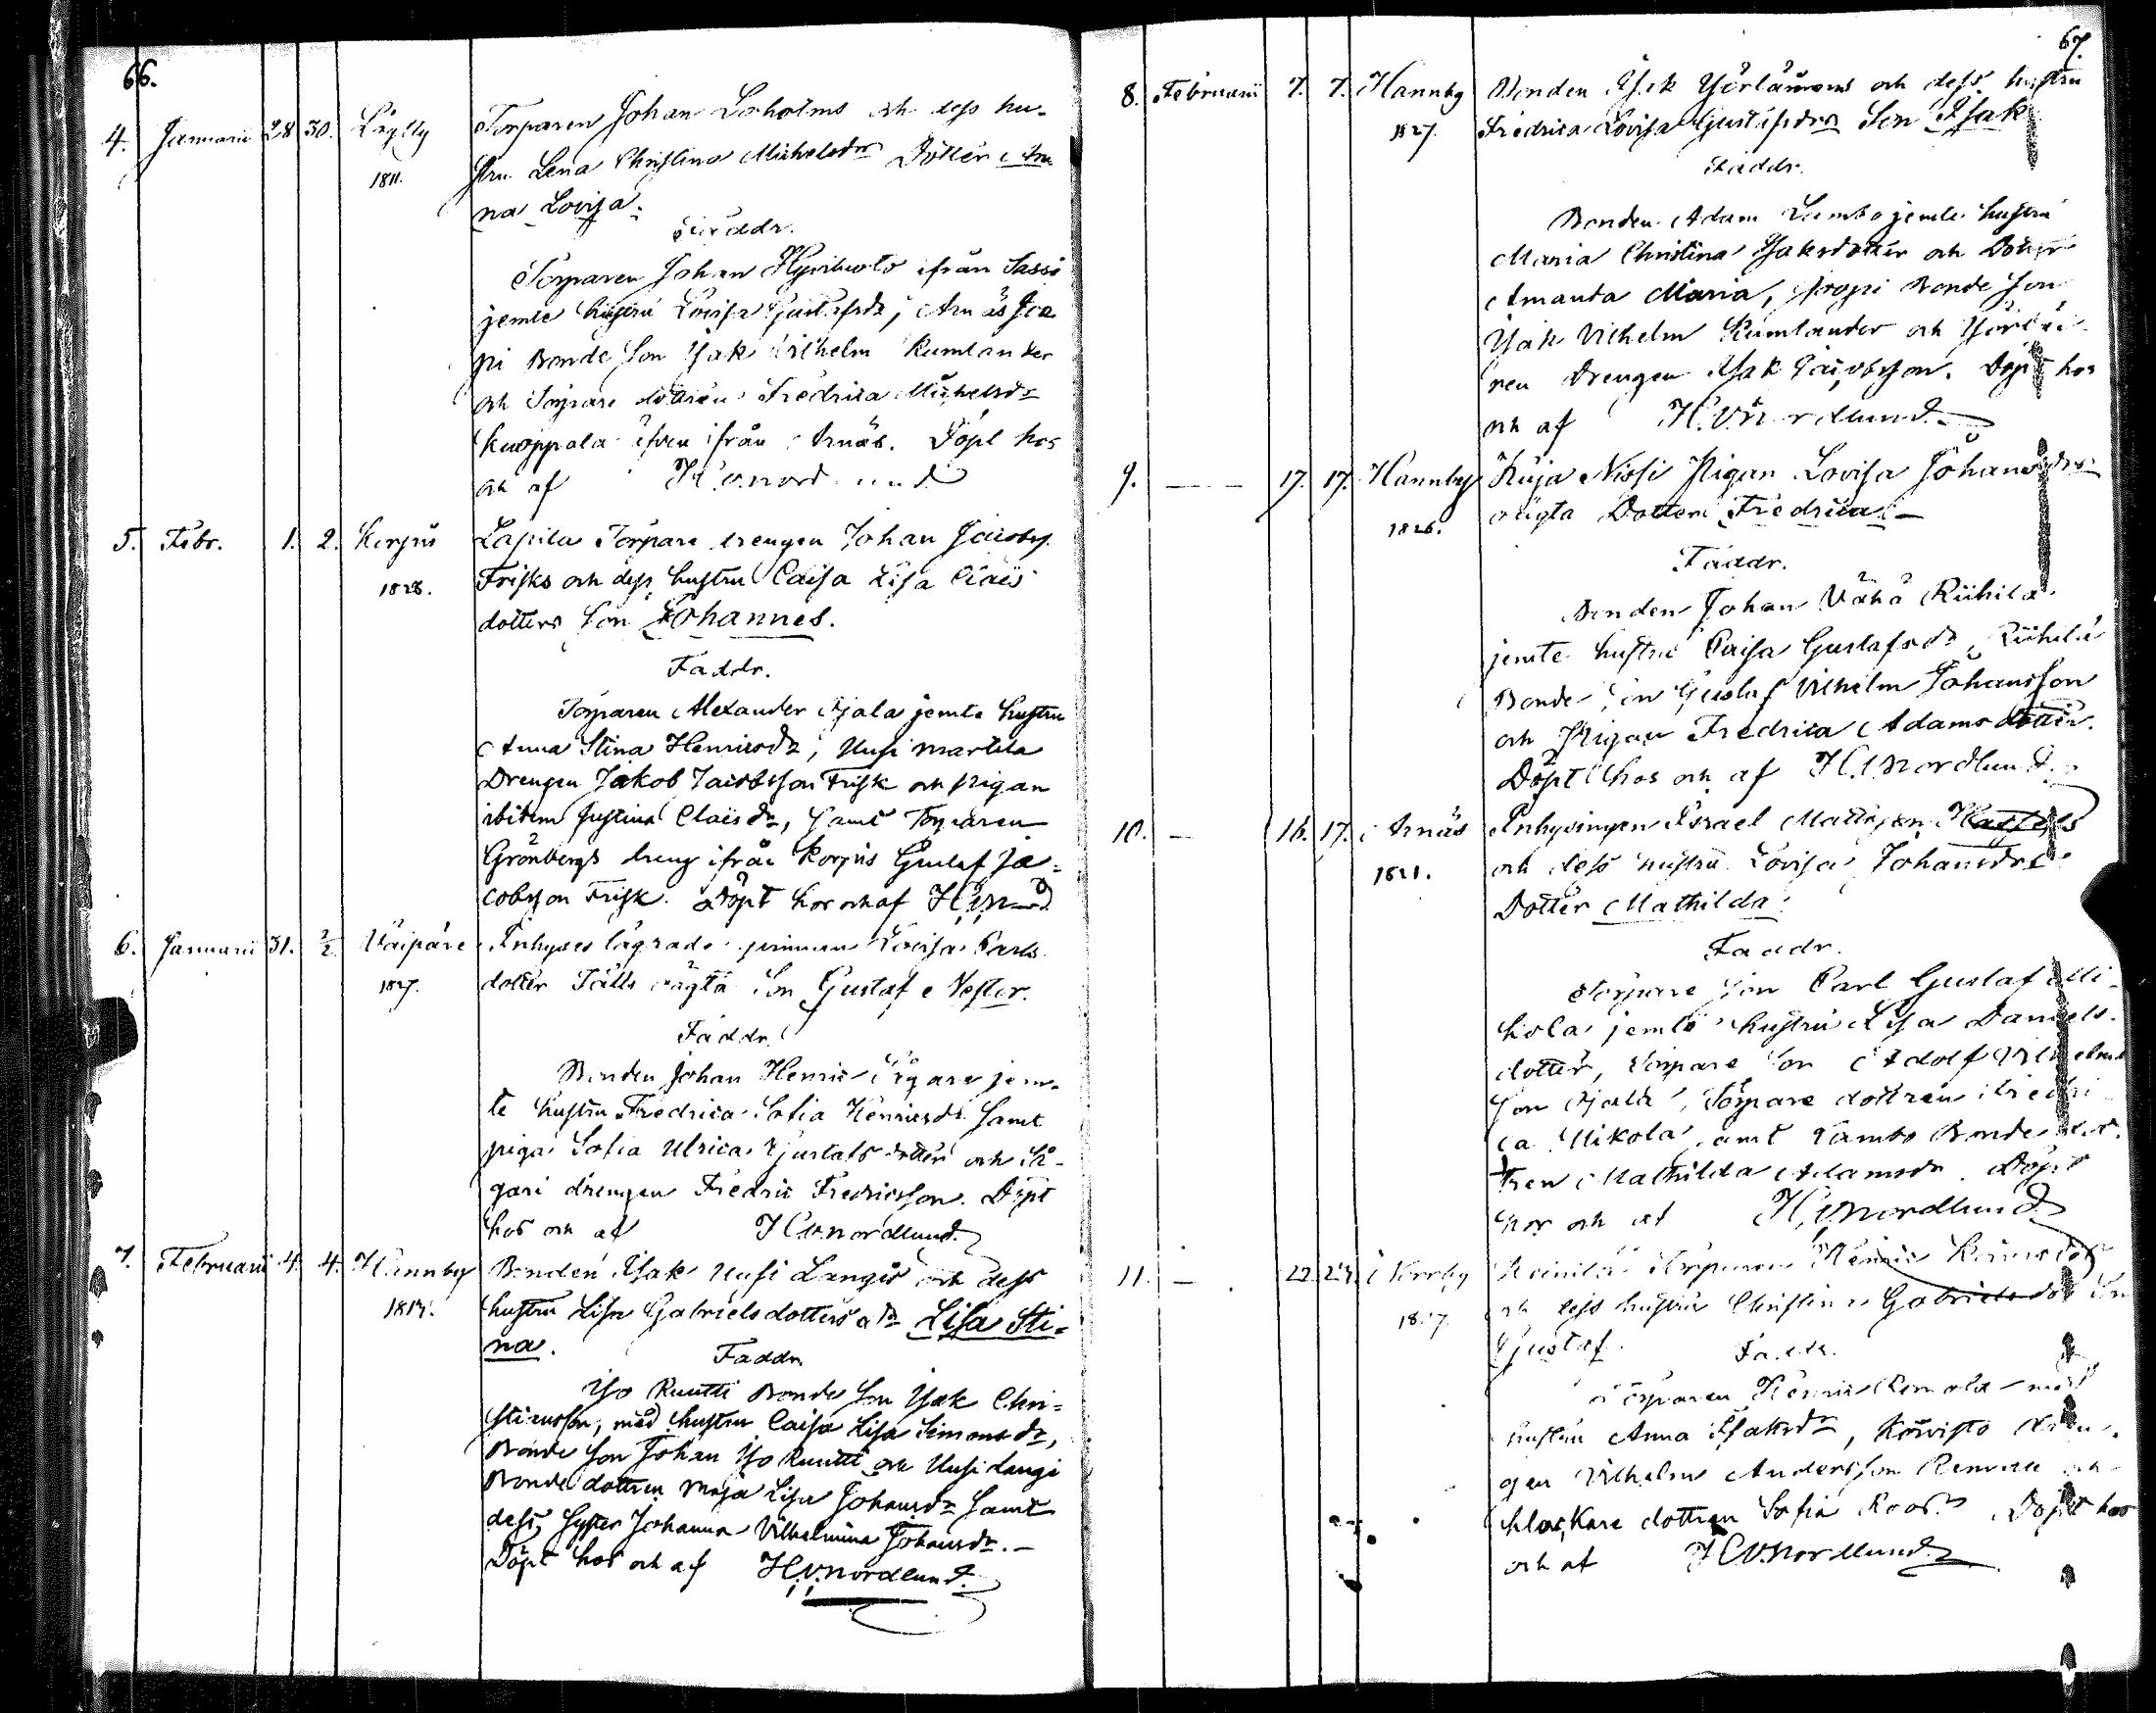 66.
4. Januarii 28 30. Lågby Torparen Johan Loholms och dess hu-
1811. stru Lena Christina Michelsdr Dotter An
na Lovisa.
Faddr.
Torparen Johan ifrån Sassi
jemte hustru Lovisa Gustafsdr, Arnäs Joa
pi Bonde Son Isak Vilhelm Rumlander
och Torpare dottren Fredrica Michelsdr
Kuoppala äfven ifrån Arnäs. Döpt hos
och af H.v.nordlund
5. Febr. 1. 2. Korpis Lapila Torpare drengen Johan Jacobss.
1828. Frisks och dess hustru Caisa Lisa Clais
dotters Son Johannes.
Faddr.
Torparen Alexander Ojala jemte hustru
Anna Stina Henricsdr, Uusi Martila
Drengen Jakob Jacobsson Frisk och pigan
ibidem Justina Claisdr, samt Torparen
Grönbergs dreng ifrån Korpis Gustaf Ja-
cobsson Frisk. Döpt hos och af H.v.n-d
6. Januarii 31. 2/2 Vaipäre Inhyses Lovisa Carls
1827. dotter Fälts oägta Son Gustaf Nestor.
Faddr.
Bonden Johan Henric Sågare jem-
te hustru Fredrica Sofia Henricsdr samt
pigan Sofia Ulrica Gustafsdotter och Så-
gari drengen Fredric Fredricsson. Döpt
hos och af H.v.nordlund.
7. Februarii 4. 4. Hannby Bonden Isak Uusi Langis och dess
hustru Lisa Gabrielsdotters dr Lisa Sti-
na.
Faddr.
Iso Ruutti Bonde Son Isak Chri-
stiansson, med hustru Caisa Lisa Simonsdr,
Bonde Son Johan Iso Ruutti och Uusi Langi
Bonde dottren Maja Lisa Johansdr samt
dess Syster Johanna Vilhelmina Johansdr.-
Döpt hos och af H.v.nordlund.
67.
8. Februarii 7. 7. Hannby Bonden Isak och dess hustru
1827. Fredrica Lovisa Gustafsdrs Son Isak
Faddr.
Bonden Adam Lambo jemte hustru
Maria Christina Isaksdotter och Dotter
Amanda Maria, Bonde Son
Isak Vilhelm Rumlander och
ren Drengen Isak Jacobsson. Döpt hos
och af H.v.nordlund.
9. - - 17. 17. Hannby Nissi Pigan Lovisa Johansdrs
1826. oägta Dotter Fredrica.-
Faddr.
Bonden Johan Vähä Riihila
jemte hustru Caisa Gustafsdr, Riihilä
Bonde Son Gustaf Vilhelm Johansson
och Pigan Fredrica Adamsdotter.
Döpt hos och af H.v.nordlund.
10. - 16. 17. Arnäs Inhysingen Israel Mattsson
1821. och dess hustru Lovisa Johansdrs
Dotter Mathilda.
Faddr.
Torpare Son Carl Gustaf Mi-
kola jemte hustru Lisa Daniels-
dotter, Torpare Son Adolf Vilhelms
son Ojala, Torpare dottren Fredri
ca Mikola, samt Lambo Bonde dot
tren Mathilda Adamsdr. Döpt
hos och af H.v.nordlund
11. - 22. Norrby Heinilä Torparen Henric
och dess hustru Christina Gabrielsdrs Son
Gustaf.
Faddr.
Torparen Henric med
hustru Anna Isaksdr, Koivisto dren-
gen Vilhelm Andersson och
klockare dottren Sofia Roos. Döpt hos
och af H.v.nordlund